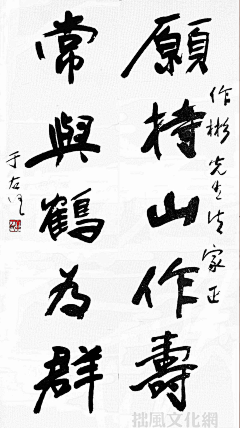 作彬先生法家正
願持山作壽
常與鶴為群
于右任
拙風文化網